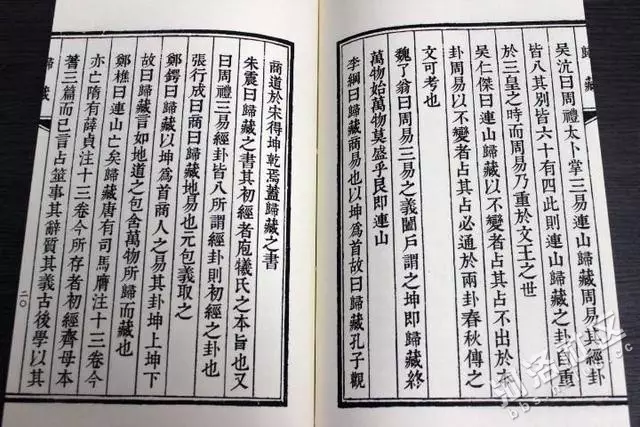 歸藏
吳沆曰周禮太卜掌三易連山歸藏周易其經卦
皆八其別皆六十有四此則連山歸藏之卦自重
於三皇之時而周易乃重於文王之世
吳仁傑曰連山歸藏以不變者占其占不出於本
卦周易以不變者占其占必通於兩卦春秋傳之
文可考也
魏了翁曰周易三易之義闔戶謂之坤即歸藏終
萬物始萬物莫盛乎艮即連山
李綱曰歸藏商易也以坤為首故曰歸藏孔子觀
商道於宋得坤乾焉蓋歸藏之書
朱震曰歸藏之書其初經者庖犧氏之本旨也又
曰周禮三易經卦皆八所謂經卦則初經之卦也
張行成曰商曰歸藏地易也元包義取之
鄭鍔曰歸藏以坤為首商人之易其卦坤上坤下
故曰歸藏言如地道之包含萬物所歸而藏也
鄭樵曰連山亡矣歸藏唐有司馬膺注十三卷今
亦亡隋有薛貞注十三卷今所存者初經齊母本
蓍三篇而已言占筮事其辭質其義古後學以其
歸藏
二〇
河洛社区